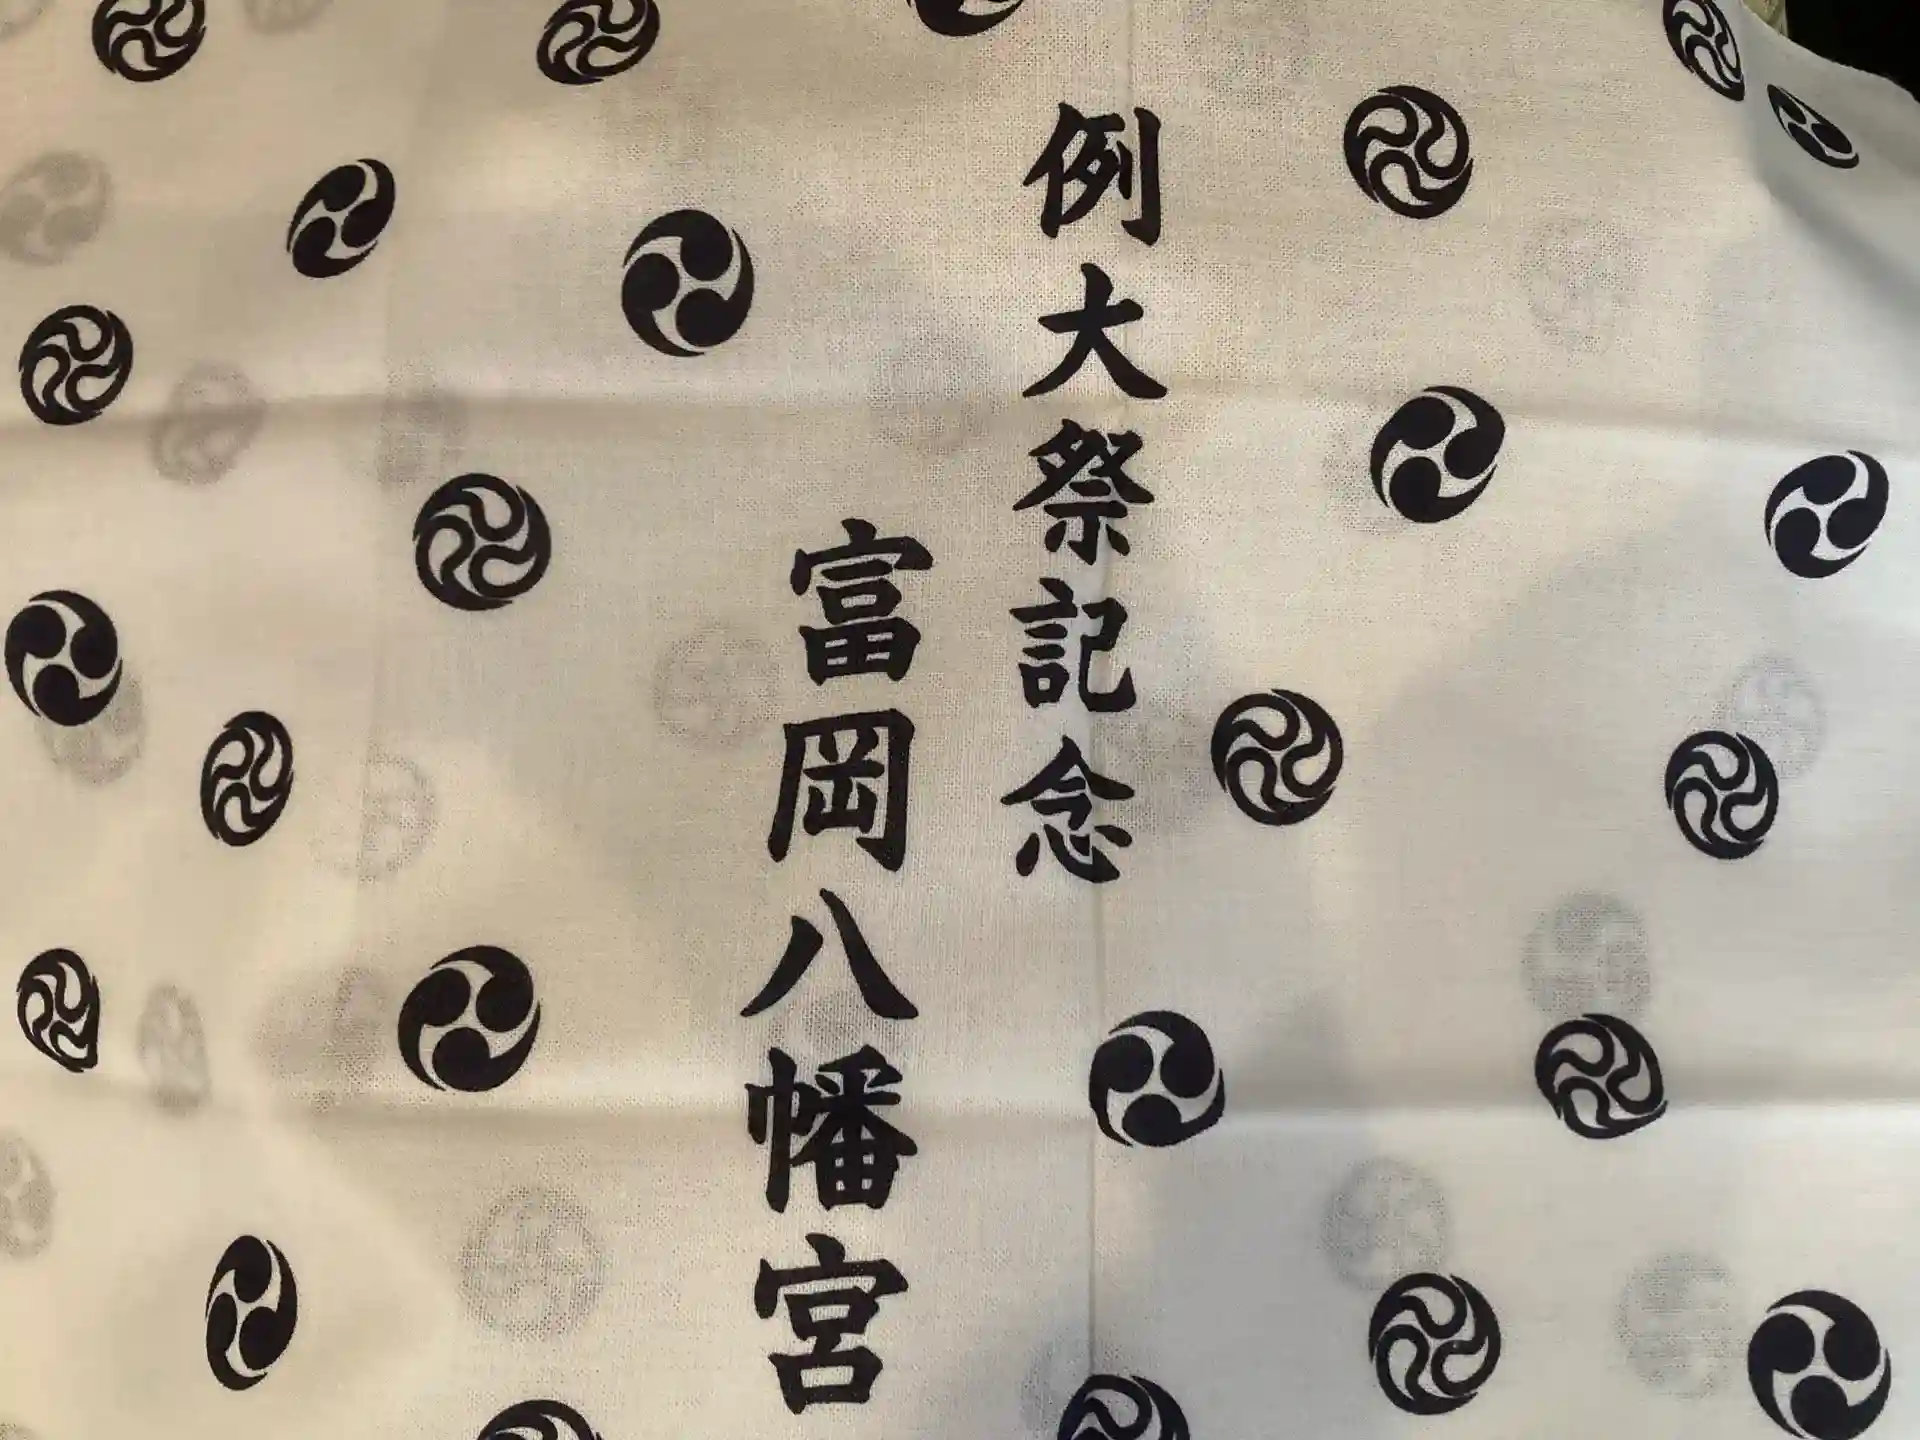 例大祭記念
富岡八幡宮